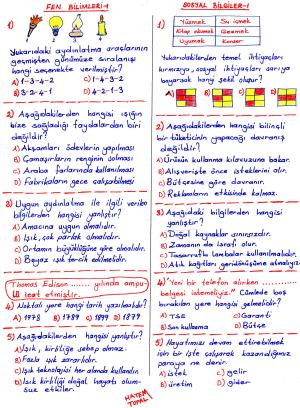 FEN BİLİMLERİ-1
1)
1 2 3 4
Yukarıdaki aydınlatma araçlarının
geçmişten günümüze sıralanışı
hangi seçenekte verilmiştir?
A) 1-3-4-2 C) 1-4-3-2
B) 3-2-4-1 D) 4-2-1-3
2) Aşağıdakilerden hangisi ışığın
bize sağladığı faydalardan biri
değildir?
A) Akşamları ödevlerin yapılması
B) Çamaşırların renginin solması
C) Araba farlarında kullanılması
D) Fabrikaların gece çalışabilmesi
3) Uygun aydınlatma ile ilgili verilen
bilgilerden hangisi yanlıştır?
A) Amacına uygun olmalıdır.
B) Işık, çok parlak olmalıdır.
C) Ortamın büyüklüğüne göre olmalıdır.
D) Beyaz ışık tercih edilmelidir.
Thomas Edison ........ yılında ampu-
lü icat etmiştir.
4) Noktalı yere hangi tarih yazılmalıdır?
A) 1778 B) 1879 C) 1899 D) 1979
5) Aşağıdakilerden hangisi yanlıştır?
A) Işık, kirliliğe sebep olmaz.
B) Fazla ışık zararlıdır.
C) Işık teknolojisi her alanda kullanılır.
D) Işık kirliliği doğal hayatı olum-
suz etkiler.
HATEM
TOPAL
SOSYAL BİLGİLER-1
1)
Yüzmek Su içmek
Kitap okumak Gezmek
Uyumak Konser
Yukarıdakilerden temel ihtiyaçları
kırmızıya, sosyal ihtiyaçları sarıya
boyarsak hangi şekil oluşur?
A) B) C) D)
2) Aşağıdakilerden hangisi bilinçli
bir tüketicinin yapacağı davranış
değildir?
A) Ürünün kullanma kılavuzuna bakar.
B) Alışverişte önce isteklerini alır.
C) Bütçesine göre davranır.
D) Reklamların etkisinde kalmaz.
3) Aşağıdaki bilgilerden hangisi
yanlıştır?
A) Doğal kaynaklar sınırsızdır.
B) Zamanın da israfı olur.
C) Tasarruflu lambalar kullanılmalıdır.
D) Atık kağıtları geri dönüşüme atmalıyız.
4) "Yeni bir telefon alırken ........
belgesi istemeliyiz." Cümlede boş
bırakılan yere hangisi gelmelidir?
A) TSE C) Garanti
B) Son kullanma D) Bütçe
5) Hayatımızı devam ettirebilmek
için bir işte çalışarak kazandığımız
paraya ne denir?
A) istek c) gelir
B) üretim d) gider